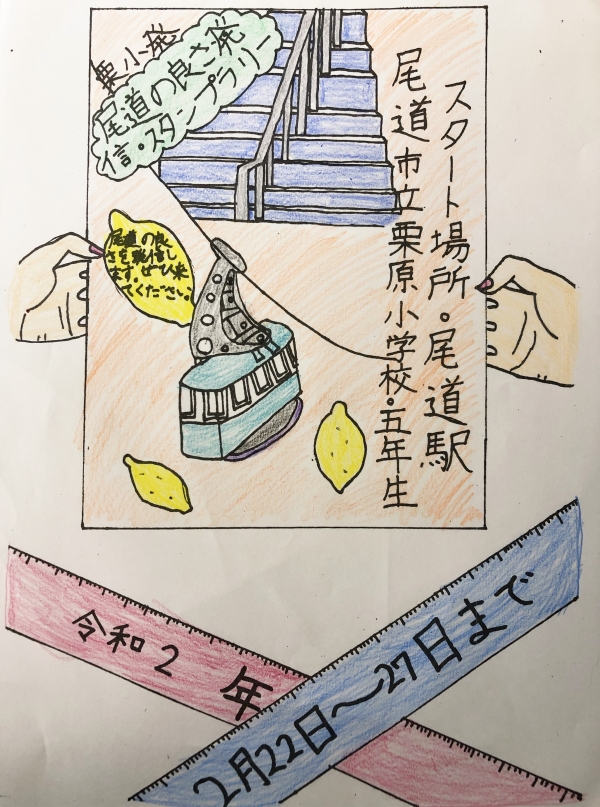 栗小発
尾道の良さ発
信・スタンプラリー
スタート場所。尾道駅
尾道市立栗原小学校・五年生
尾道の良
さを発信し
ます。ぜひ来
てください。
令和2年
2月22日〜27日まで